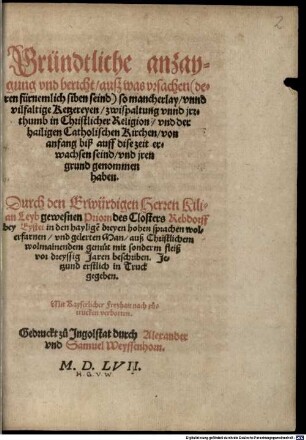 2
Gründtliche anzay-
gung vnd bericht/ auß was vrsachen/ de-
ren fürnemlich siben seind) so mancherlay/ vnnd
vilfaltige Ketzereyen/ zwispaltung vnnd jrr-
thumb in Christlicher Religion/ vnd der
hailigen Catholischen Kirchen/ von
anfang biß auff dise zeit er-
wachsen seind/ vnd jren
grund genommen
haben.
Durch den Erwürdigen Herren Kili-
an Leyb gewesnen Priorn des Closters Rebdorff
bey Eystet in den haylige dreyen hohen sprachen wol-
erfarnen/ vnd gelerten Man/ auß Christlichem
wolmainendem gemüt mit sonderm fleiß
vor dreyssig Jaren beschriben. Je-
tzund erstlich in Truck
gegeben.
Mit Kayserlicher Freyhait nach zů-
trucken verbotten.
Gedruckt zů Ingolstat durch Alexander
vnd Samuel Weyssenhorn.
M. D. LVII.
H. G. V. W.